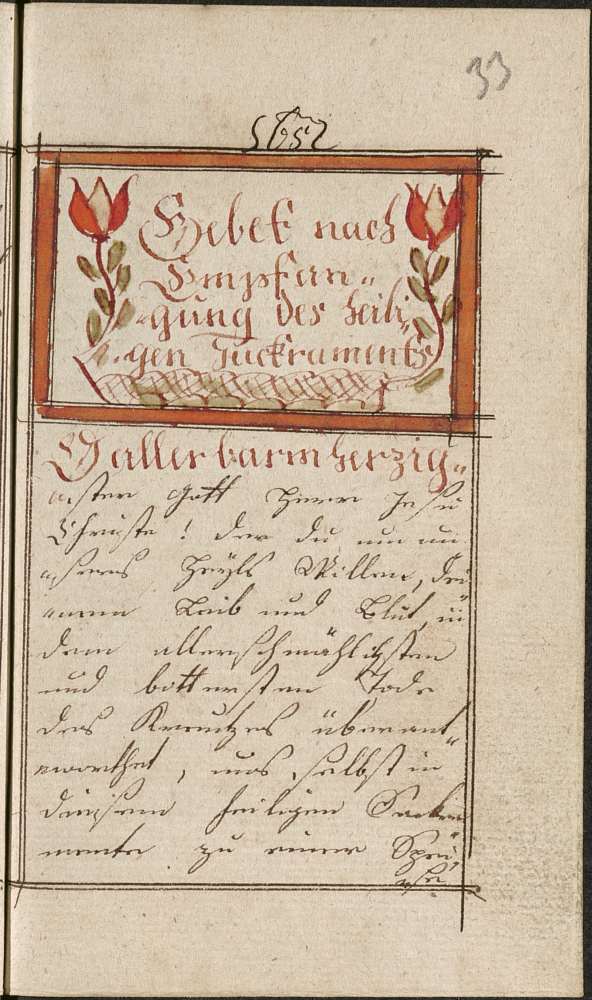 33
(65)
Gebet nach
Empfan„
„gung des heili„
„gen Sackraments
O aller barmherzig„
„ster Gott Herr Jesu
Christe! der du um un„
„sers Heyls Willen, dei„
„nen Leib und Blut, in
dem allerschmählichsten
und bittersten Tode
des Kreutzes überant„
„worthet, uns selbst in
diesem heiligen Sackra„
mente zu einer Spei„
„se